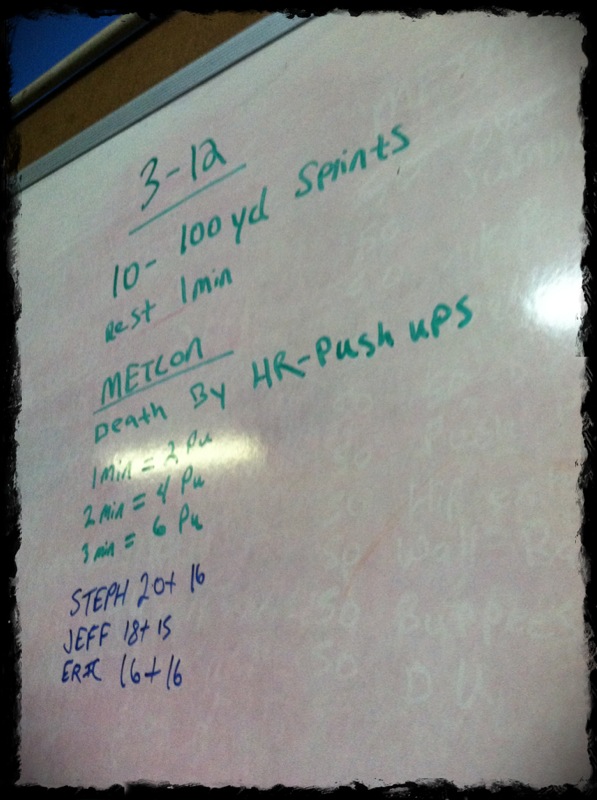 3-12
10- 100 yd Sprints
Rest 1 min
METCON
Death By HR-Push ups
1 min = 2 Pu
2 min = 4 Pu
3 min = 6 Pu
STEPH 20+ 16
JEFF 18+ 15
ERIC 16+16
50
50 Wall
50 Burpees
50 DU